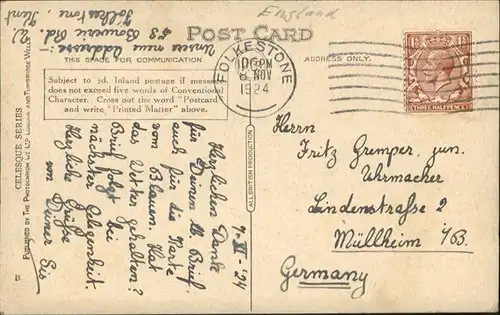 England
Unsere neue Addresse:-
58 Bouverie Rd.
Folkestone, Kent
POST CARD.
THIS SPACE FOR COMMUNICATION
ADDRESS ONLY.
Subject to ½d. Inland postage if message
does not exceed five words of Conventional
Character. Cross out the word "Postcard
and write "Printed Matter" above.
FOLKESTONE
8 NOV
1924
THREE HALFPENCE
7-XI-'24
Herzlichen Danke
für Deinen lb. Brief,
auch für die Karte
vom Blauen. Hat
das Wetter gehalten?
Brief folgt bei
nächster Gelegenheit.
Herzliche Grüße
von Deiner Els
Herrn
Fritz Gremper, jun.
Uhrmacher
Lindenstraße 2
Müllheim i/B.
Germany
CELESQUE SERIES
PUBLISHED BY THE PHOTOCHROM CO. LTD. LONDON AND TUNBRIDGE WELLS
ALL BRITISH PRODUCTION
B